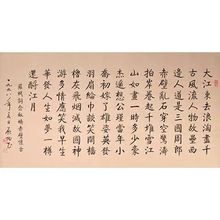 大江東去浪淘盡千
古風流人物故壘西
邊人道是三國周郎
赤壁亂石穿空驚濤
拍岸卷起千堆雪江
山如畫一時多少豪
傑遙想公瑾當年小
喬初嫁了雄姿英發
羽扇綸巾談笑間檣
櫓灰飛煙滅故國神
遊多情應笑我早生
華發人生如夢一樽
還酹江月
蘇軾詞念奴嬌赤壁懷古
一九九八年